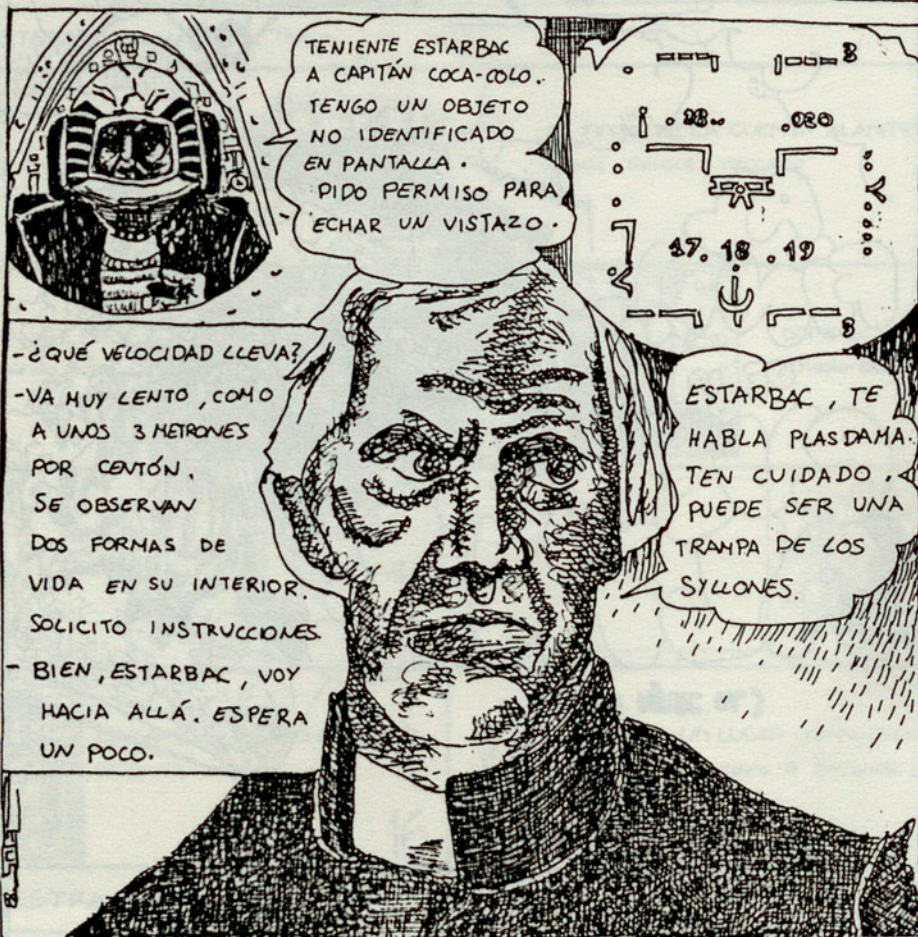 TENIENTE ESTARBAC
A CAPITÁN COCA-COLO.
TENGO UN OBJETO
NO IDENTIFICADO
EN PANTALLA.
PIDO PERMISO PARA
ECHAR UN VISTAZO.
3
.98.. .020
17. 18 .19
3
-¿QUÉ VELOCIDAD LLEVA?
-VA MUY LENTO, COMO
A UNOS 3 METRONES
POR CENTÓN.
SE OBSERVAN
DOS FORMAS DE
VIDA EN SU INTERIOR.
SOLICITO INSTRUCCIONES.
- BIEN, ESTARBAC, VOY
HACIA ALLÁ. ESPERA
UN POCO.
ESTARBAC, TE
HABLA PLASDAMA.
TEN CUIDADO.
PUEDE SER UNA
TRAMPA DE LOS
SYLLONES.